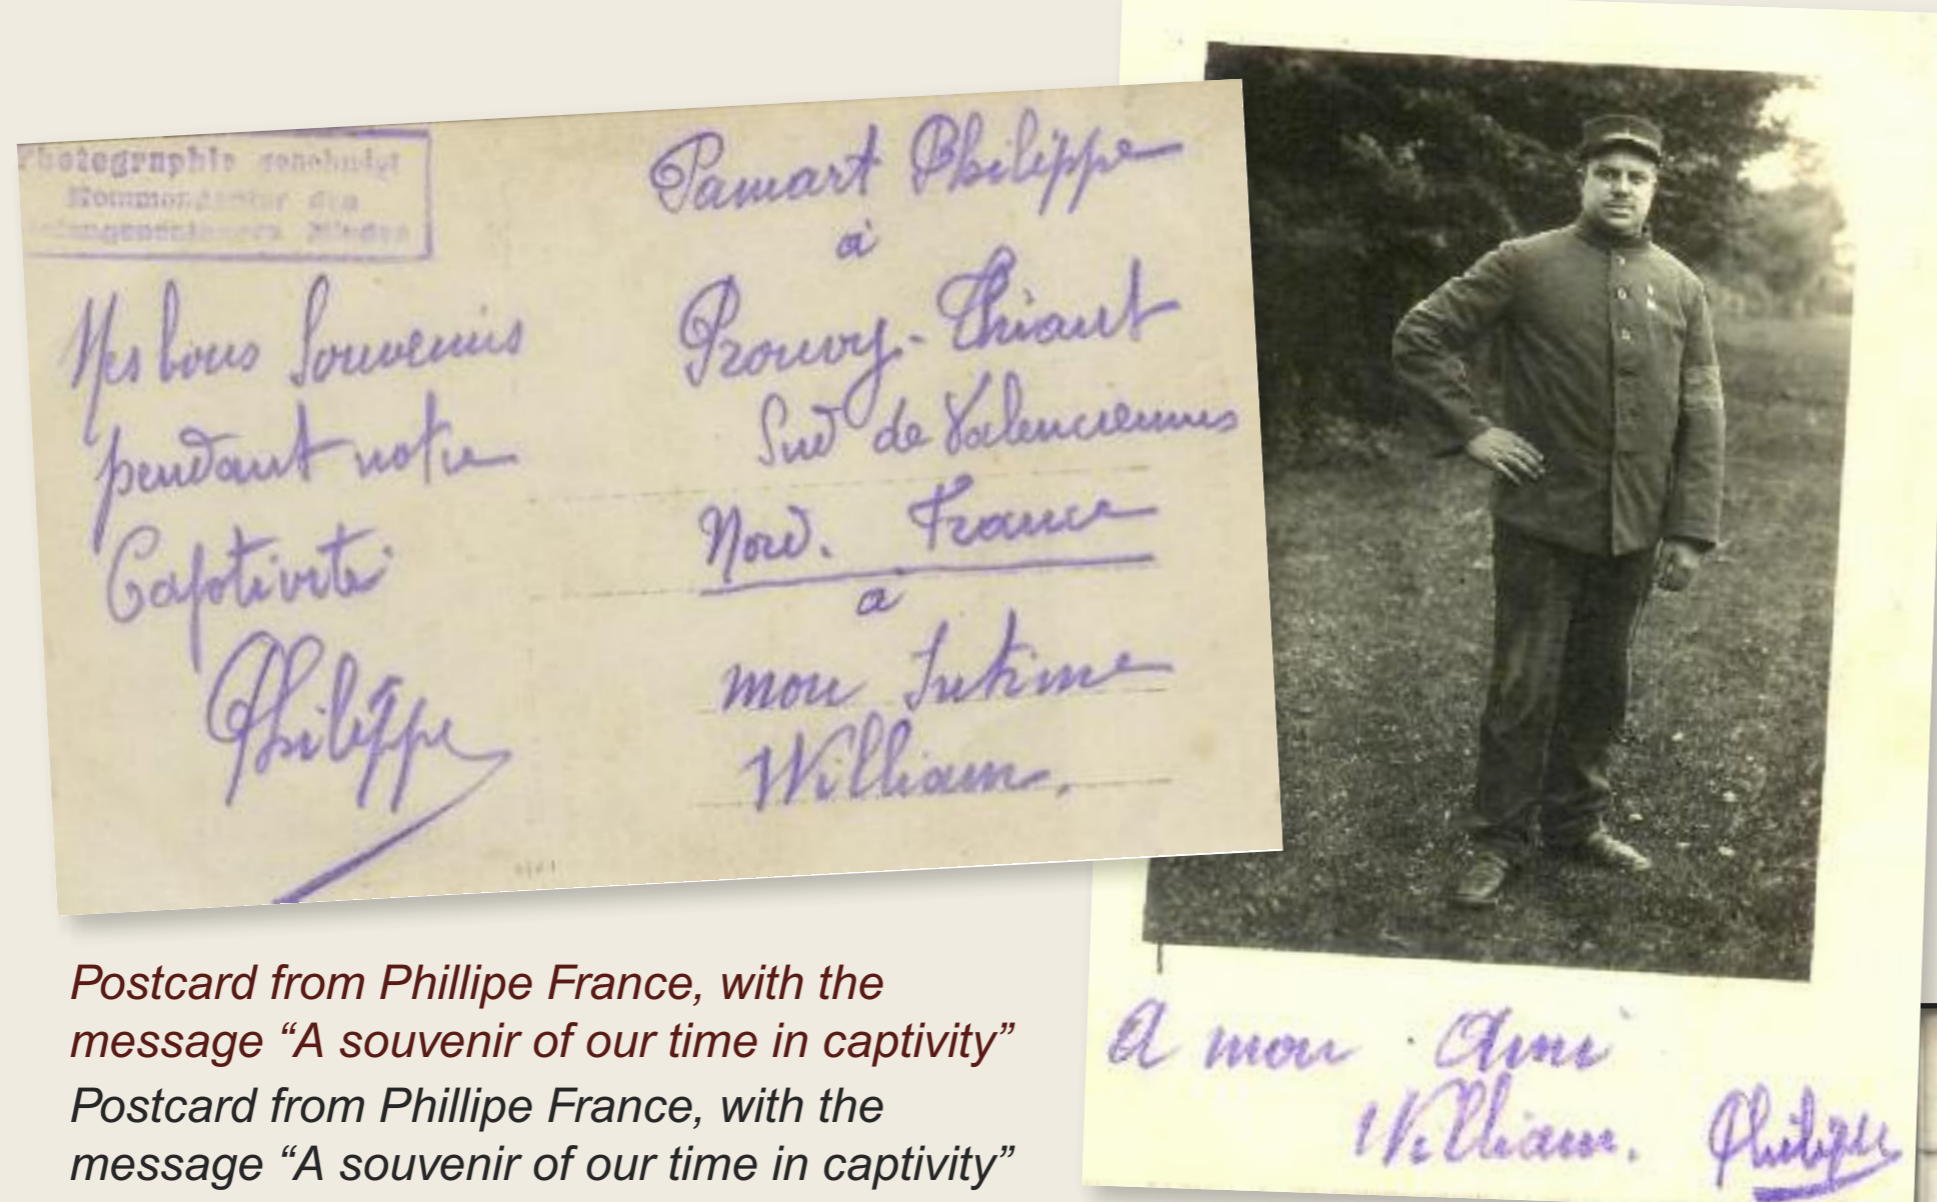 Photographie genehmigt
Kommandantur des
Minden
Mes bons Souvenirs
pendant notre
Captivité
Philippe
Pamart Philippe
à
Prouvy-Thiant
Sud de Valenciennes
Nord. France
a
mon Intime
William.
A mon Ami
William. Philippe
Postcard from Phillipe France, with the
message “A souvenir of our time in captivity”
Postcard from Phillipe France, with the
message “A souvenir of our time in captivity”